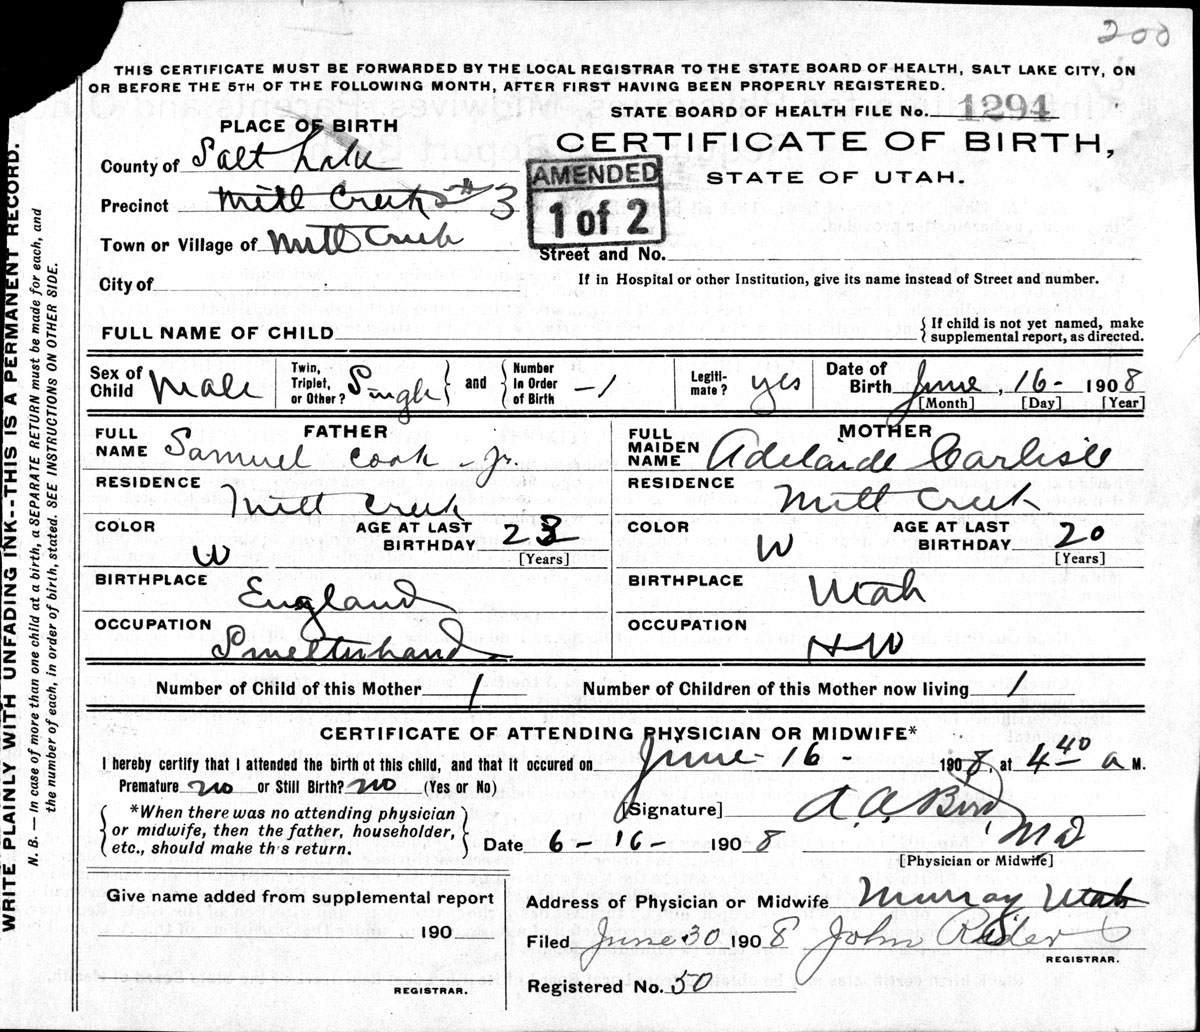 200
THIS CERTIFICATE MUST BE FORWARDED BY THE LOCAL REGISTRAR TO THE STATE BOARD OF HEALTH, SALT LAKE CITY, ON
OR BEFORE THE 5TH OF THE FOLLOWING MONTH, AFTER FIRST HAVING BEEN PROPERLY REGISTERED.
STATE BOARD OF HEALTH FILE No. 1294
PLACE OF BIRTH
CERTIFICATE OF BIRTH,
STATE OF UTAH.
County of Salt Lake
AMENDED
1 of 2
Precinct Mill Creek #3
Town or Village of Mill Creek
Street and No.
City of
If in Hospital or other Institution, give its name instead of Street and number.
FULL NAME OF CHILD
{ If child is not yet named, make
supplemental report, as directed.
Sex of Child Male
Twin, Triplet, or Other? Single } and { Number In Order of Birth -1
Legiti-mate? yes
Date of Birth June, 16- 1908
[Month] [Day] [Year]
FATHER
FULL NAME Samuel Cook Jr.
RESIDENCE Mill Creek
COLOR W
AGE AT LAST BIRTHDAY 23 [Years]
BIRTHPLACE England
OCCUPATION Smelterhand
MOTHER
FULL MAIDEN NAME Adelaide Carlisle
RESIDENCE Mill Creek
COLOR W
AGE AT LAST BIRTHDAY 20 [Years]
BIRTHPLACE Utah
OCCUPATION H W
Number of Child of this Mother 1
Number of Children of this Mother now living 1
CERTIFICATE OF ATTENDING PHYSICIAN OR MIDWIFE*
I hereby certify that I attended the birth of this child, and that it occured on June 16 - 1908, at 4 40 a M.
Premature no or Still Birth? no (Yes or No)
{ *When there was no attending physician
or midwife, then the father, householder,
etc., should make this return. }
[Signature] A. A. Bird, MD
Date 6-16- 1908
[Physician or Midwife]
Give name added from supplemental report
190
REGISTRAR.
Address of Physician or Midwife Murray Utah
Filed June 30 1908 John
REGISTRAR.
Registered No. 50
WRITE PLAINLY WITH UNFADING INK--THIS IS A PERMANENT RECORD.
N. B. — In case of more than one child at a birth, a SEPARATE RETURN must be made for each, and
the number of each, in order of birth, stated. SEE INSTRUCTIONS ON OTHER SIDE.